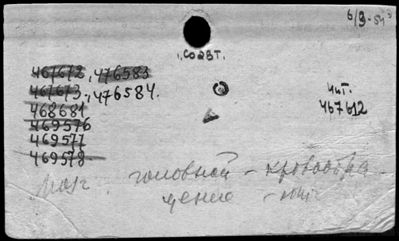 6/9-54г
.СОЗВТ.
467672, 476583
467673, 476584.
468681
469576
469577
469578
чит.
467612
Мозг. головной - кровообра-
щение -